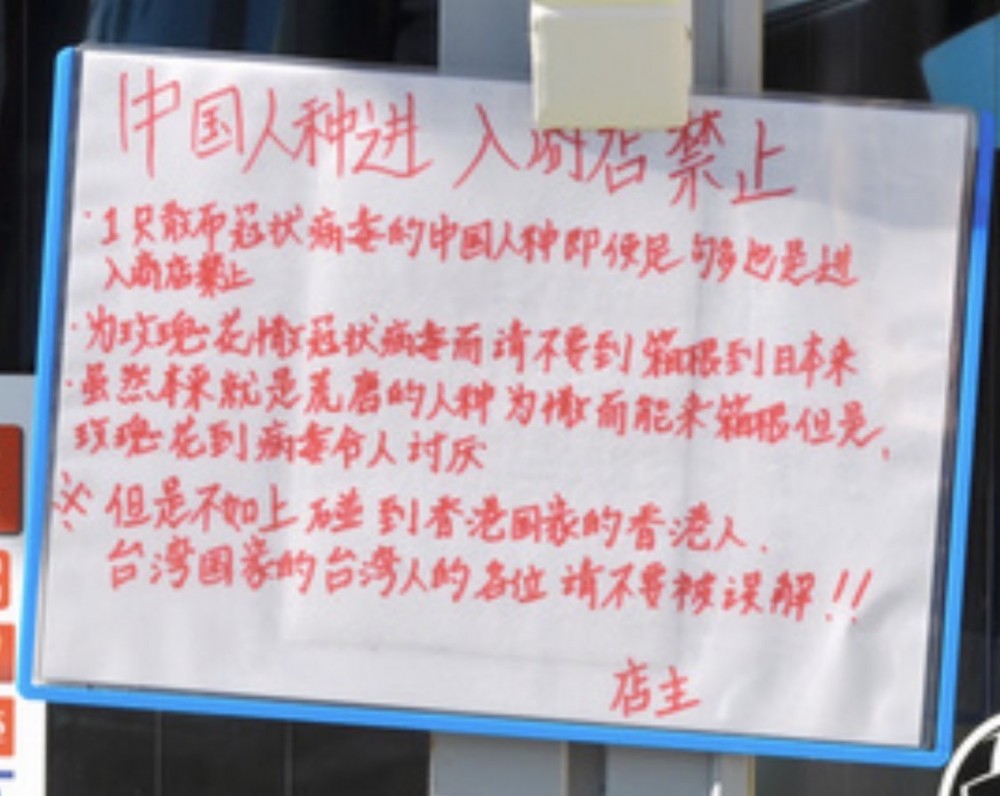 中国人种进入商店禁止
·1只散布冠状病毒的中国人种即使足够多也是进
入商店禁止
·为玫瑰花撒冠状病毒而请不要到箱根到日本来
·虽然本来就是荒磨的人种为撒而能来箱根但是、
玫瑰花到病毒令人讨厌
※但是不如上碰到香港国家的香港人、
台湾国家的台湾人的各位请不要被误解!!
店主